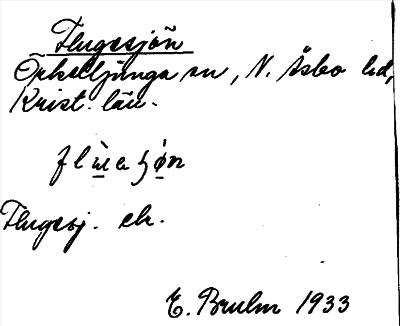 Flugesjön
Örkelljunga sn, N. Åsbo hd,
Krist. län.
Flugesj. ek.
E. Bruhn 1933